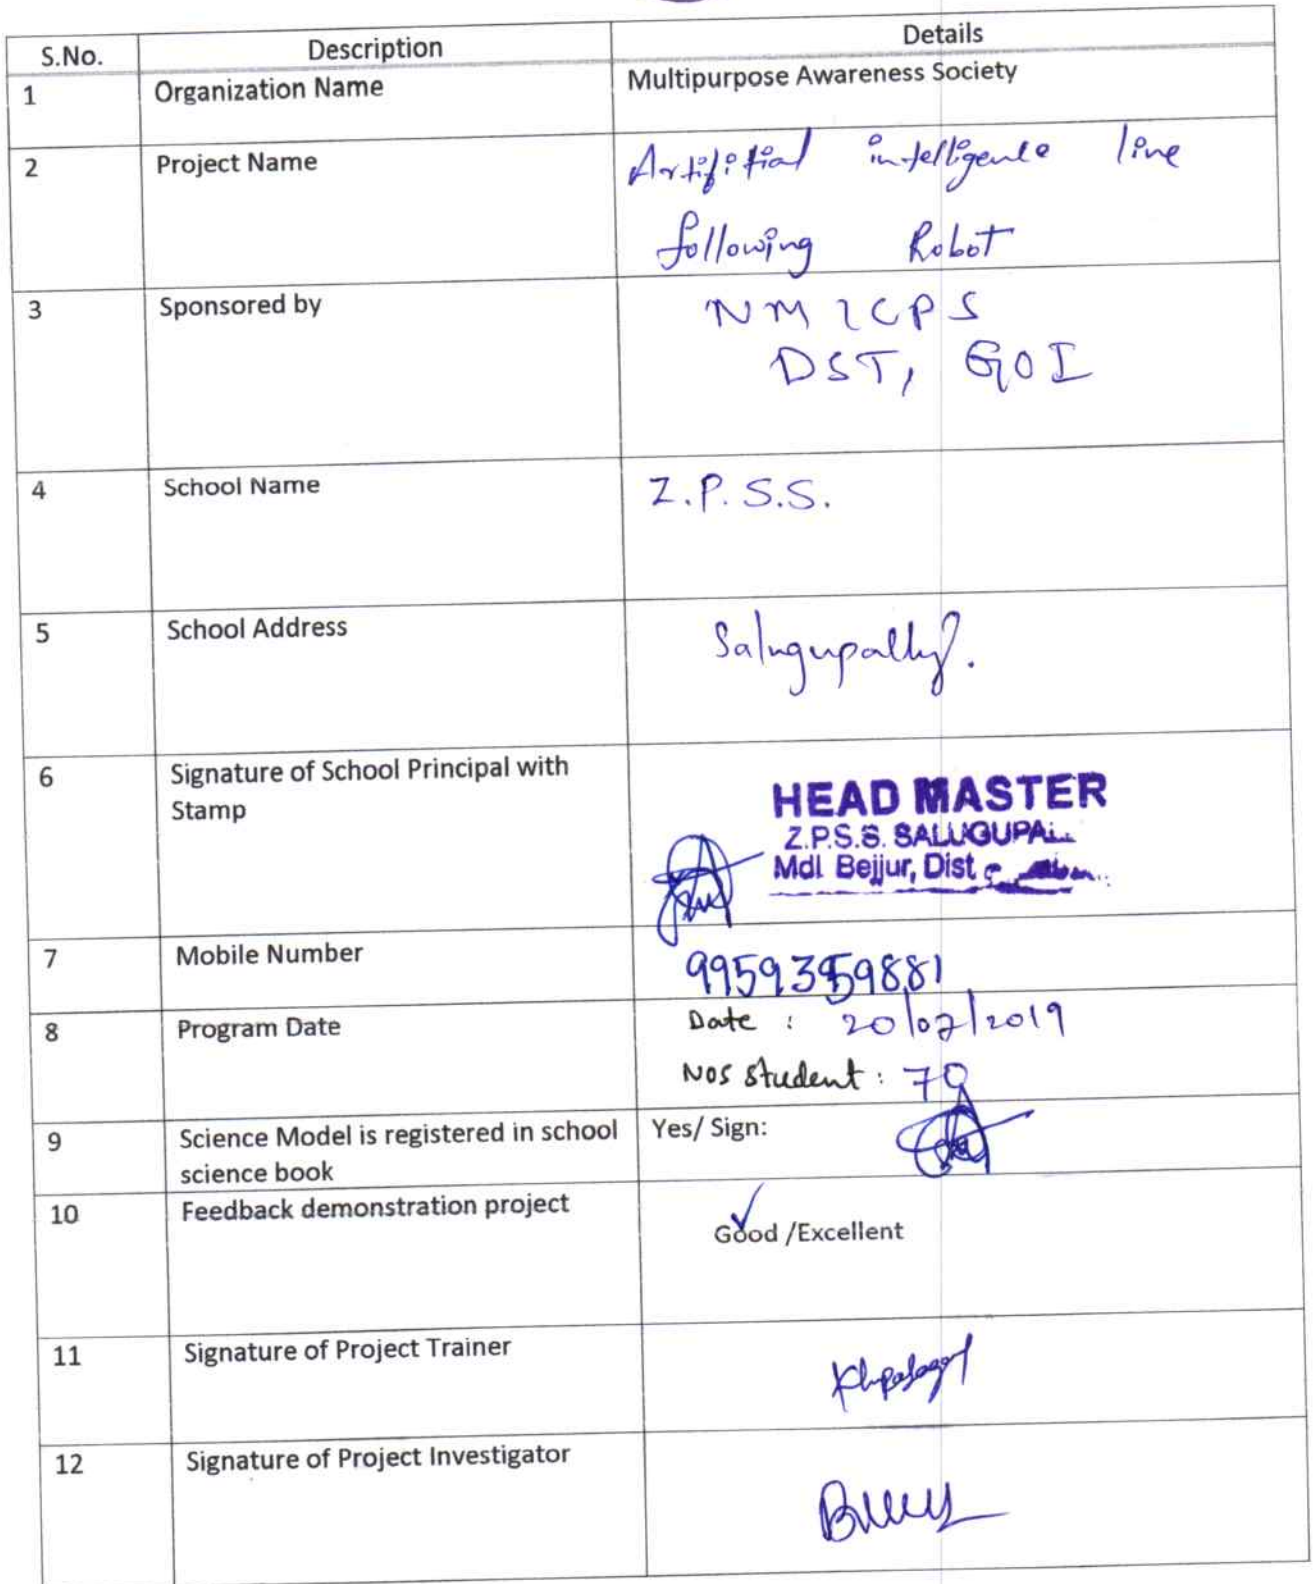 S.No. Description Details
1 Organization Name Multipurpose Awareness Society
2 Project Name Artifitial intelligence line
following Robot
3 Sponsored by NM ICPS
DST, GOI
4 School Name Z.P.S.S.
5 School Address Salugupally.
6 Signature of School Principal with
Stamp
HEAD MASTER
Z.P.S.S. SALUGUPAL
Mdl Bejjur, Dist
7 Mobile Number
8 Program Date Date : 20/02/2019
Nos student : 70
9 Science Model is registered in school Yes/ Sign:
science book
10 Feedback demonstration project
Good /Excellent
11 Signature of Project Trainer
12 Signature of Project Investigator